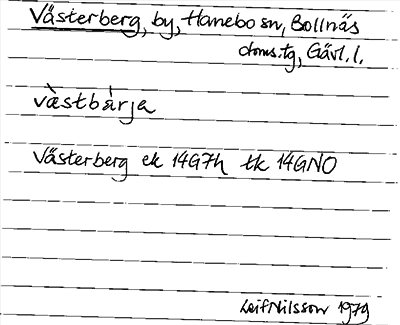 Västerberg, by, Hanebo sn, Bollnäs
doms.tg, Gävl. l.
våstbärja
Västerberg ek 14G7h tk 14GNO
Leif Nilsson 1979